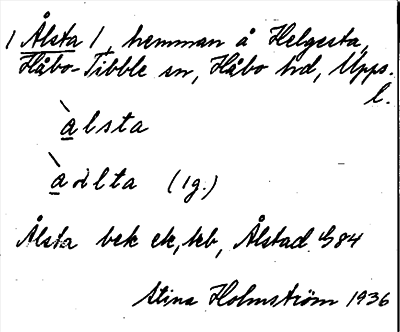 / Ålsta /, hemman å Helgesta,
Håbo-Tibble sn, Håbo hd, Upps.
l.
àlsta
(1g.)
Ålsta bek ek, kb, Ålstad GS4
Stina Holmström 1936